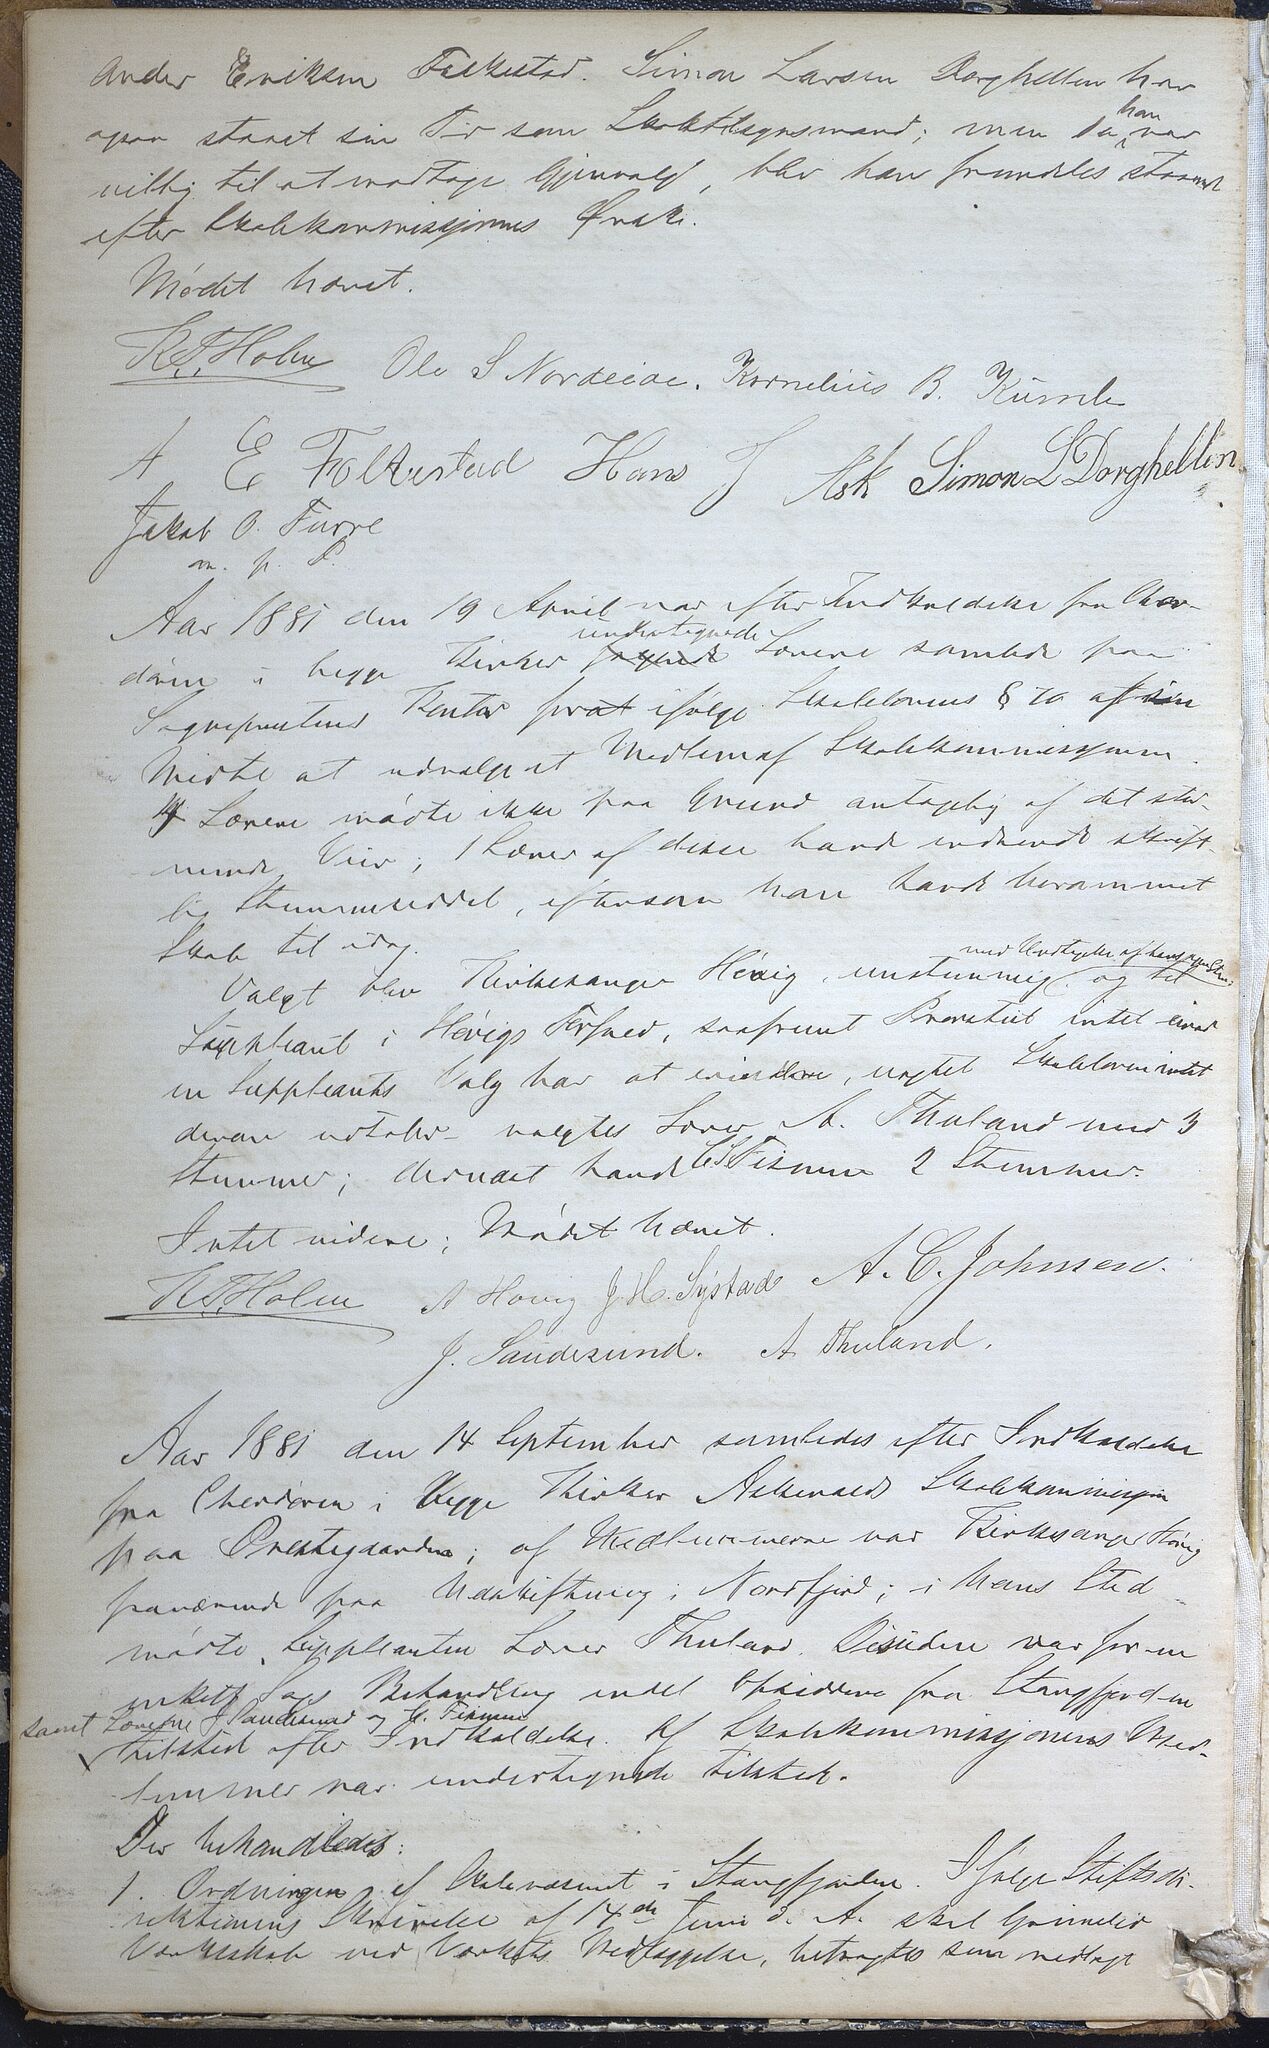 Ander Eriksen Folkestad. Simon Larsen Dorghellen har
ogsaa staaet sin Tid som Skoletilsynsmand; men da han var
villig til at modtage Gjenvalg, blev han fremdeles staaende
efter Skolekommissjonens Ønske.
Mødet hævet.
K.S. Holm Ole S Nordeide. Kornelius B. Kumle
A E Folkestad Hans J Ask Simon L Dorghellen
Jakob O. Furre
m. p. P.
Aar 1881 den 19 April var efter Indkaldelse fra Chor-
døren i begge Kirker undertegnede Lærere samlede paa
Sognepræstens Kontor forat ifølge Skolelovens § 70 af sin
Midte at udvælge et Medlem af Skolekommissjonen.
4 Lærere mødte ikke paa Grund antagelig af det stor-
mende Veir; 1 Lærer af disse havde indsendt skrift-
lig Stemmeseddel, eftersom han havde berammet
Skole til idag.
Valgt blev Kirkesanger Høvig enstemmig med Undtagelse af hans egen Stemme og til
Suppleant i Høvigs Forfald, saafremt Provstiet intet imod
en Suppleants Valg har at erindre, uagtet Skoleloven intet
derom udtaler – valgtes Lærer A. Thuland med 3
Stemmer; dernæst havde C. Fismen 2 Stemmer.
Intet videre; Mødet hævet.
K.S. Holm A Høvig J. H. Systad A. C. Johnsen.
J. Sandesund. A Thuland.
Aar 1881 den 14 September samledes efter Indkaldelse
fra Chordøren i begge Kirker Askevolds Skolekommission
paa Præstegaarden; af Medlemmerne var Kirkesanger Høvig
fraværende paa Udskiftning i Nordfjord; i hans Sted
mødte Suppleanten Lærer Thuland. Desuden var for en
enkelt Sags Behandling endel Opsiddere fra Stangfjorden
samt Lærerne J Sandesund og C. Fismen
tilstede efter Indkaldelse. Af Skolekommissjonens Med-
lemmer var undertegnede tilstede.
Der behandledes:
1. Ordningen af Skolevæsenet i Stangfjorden. Ifølge Stiftsdi-
rektionens Skrivelse af 14de Juni d. A. skal Grimelid
Værksskole ved Værkets Nedlæggelse, betragtes som nedlagt